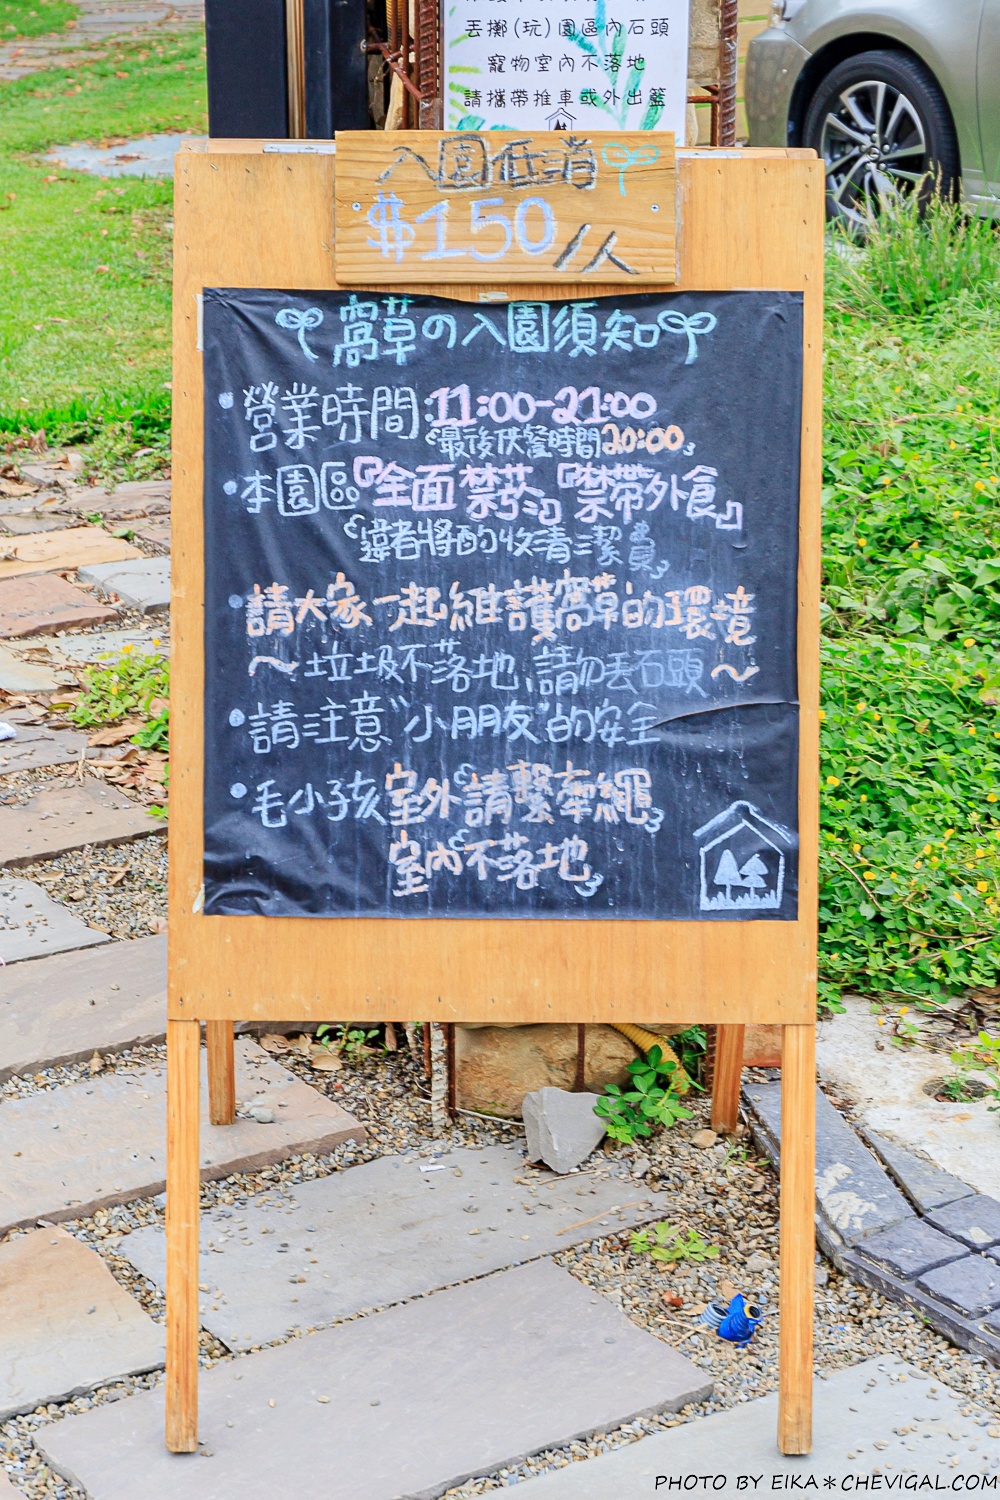 丟擲(玩)園區內石頭
寵物室內不落地
請攜帶推車或外出籃
入園低消
$150/人
窩草の入園須知
•營業時間:11:00-21:00
最後供餐時間20:00
•本園區『全面禁菸』『禁帶外食』
違者將酌收清潔費
•請大家一起維護窩草的環境
~垃圾不落地,請勿丟石頭~
•請注意"小朋友"的安全
•毛小孩室外請繫牽繩
室內不落地
PHOTO BY EIKA＊CHEVIGAL.COM